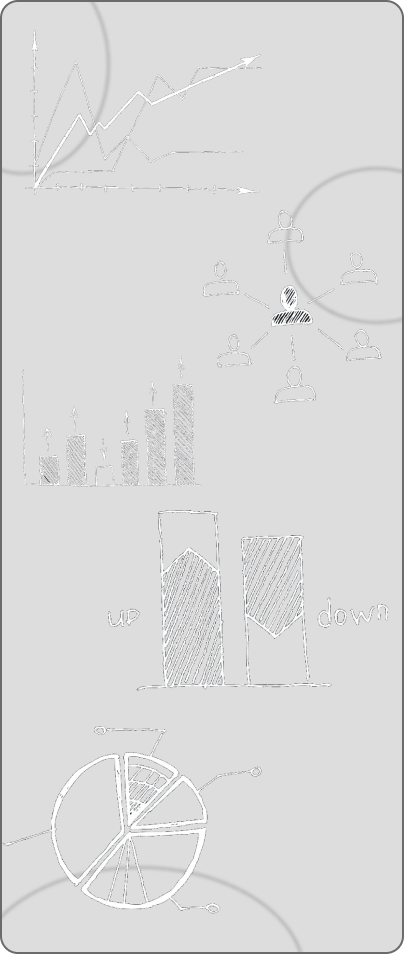 up
down